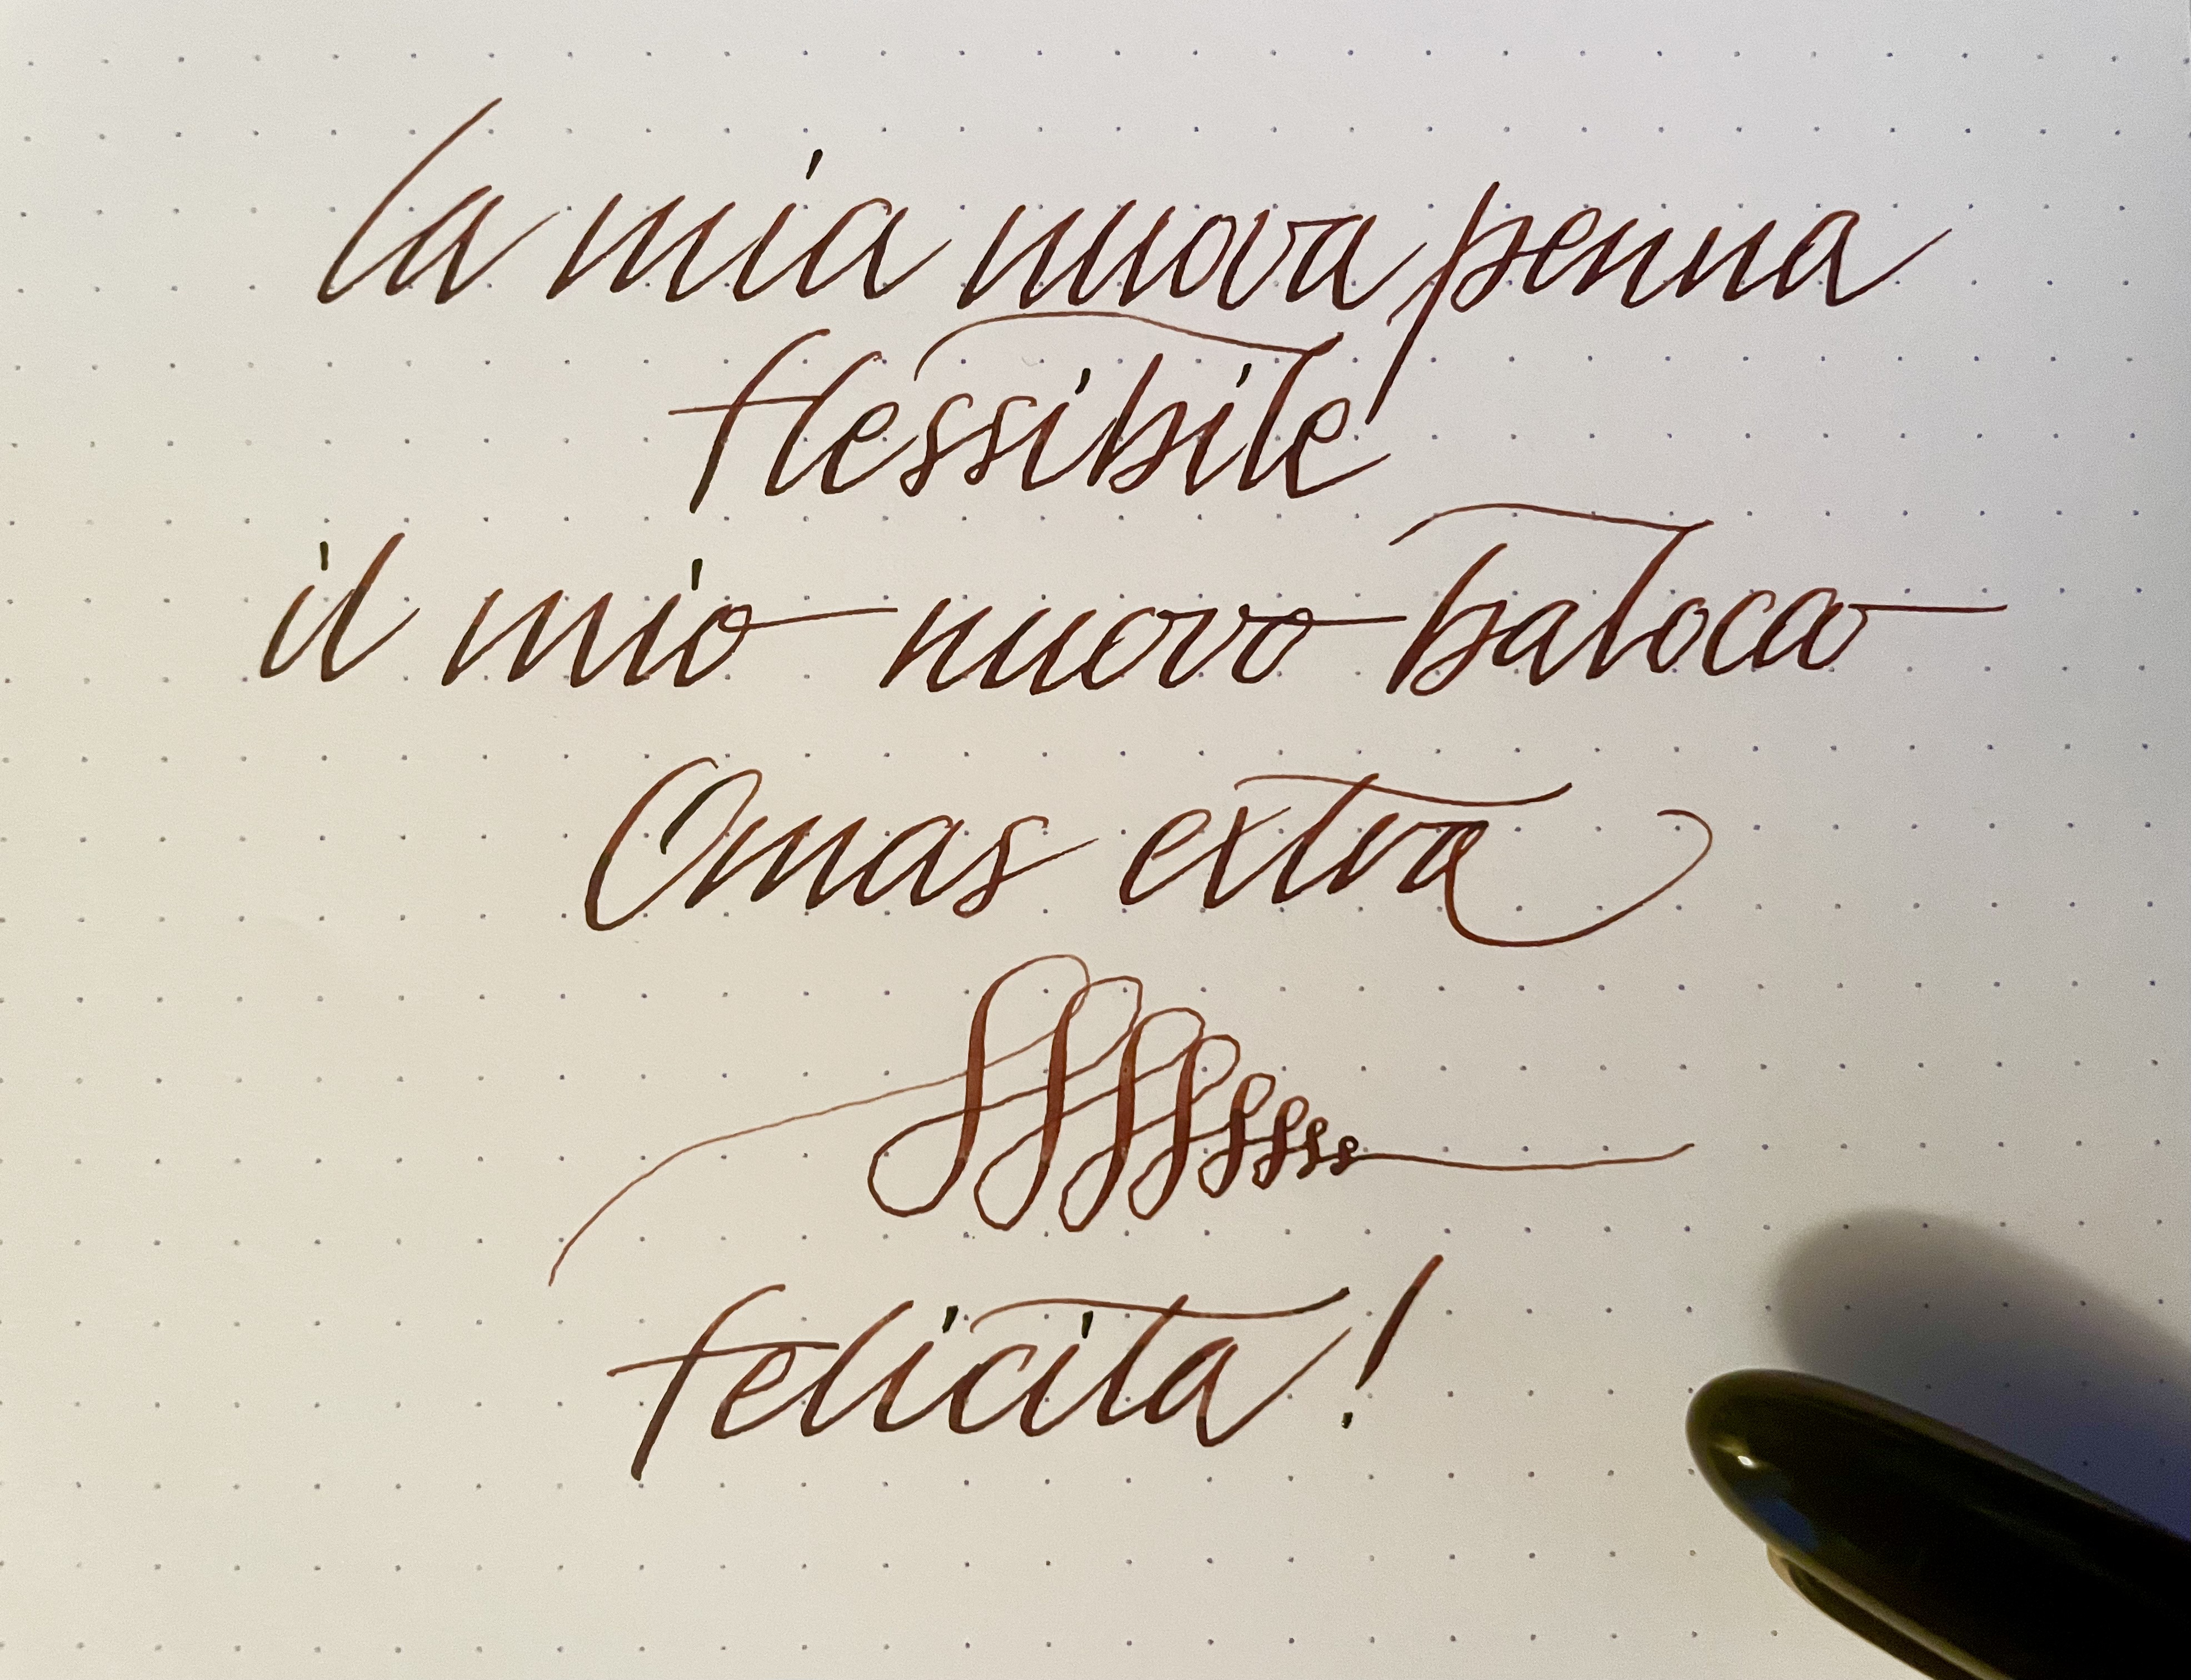 la mia nuova penna
flessibile
il mio nuovo balocco
Omas extra
felicita!